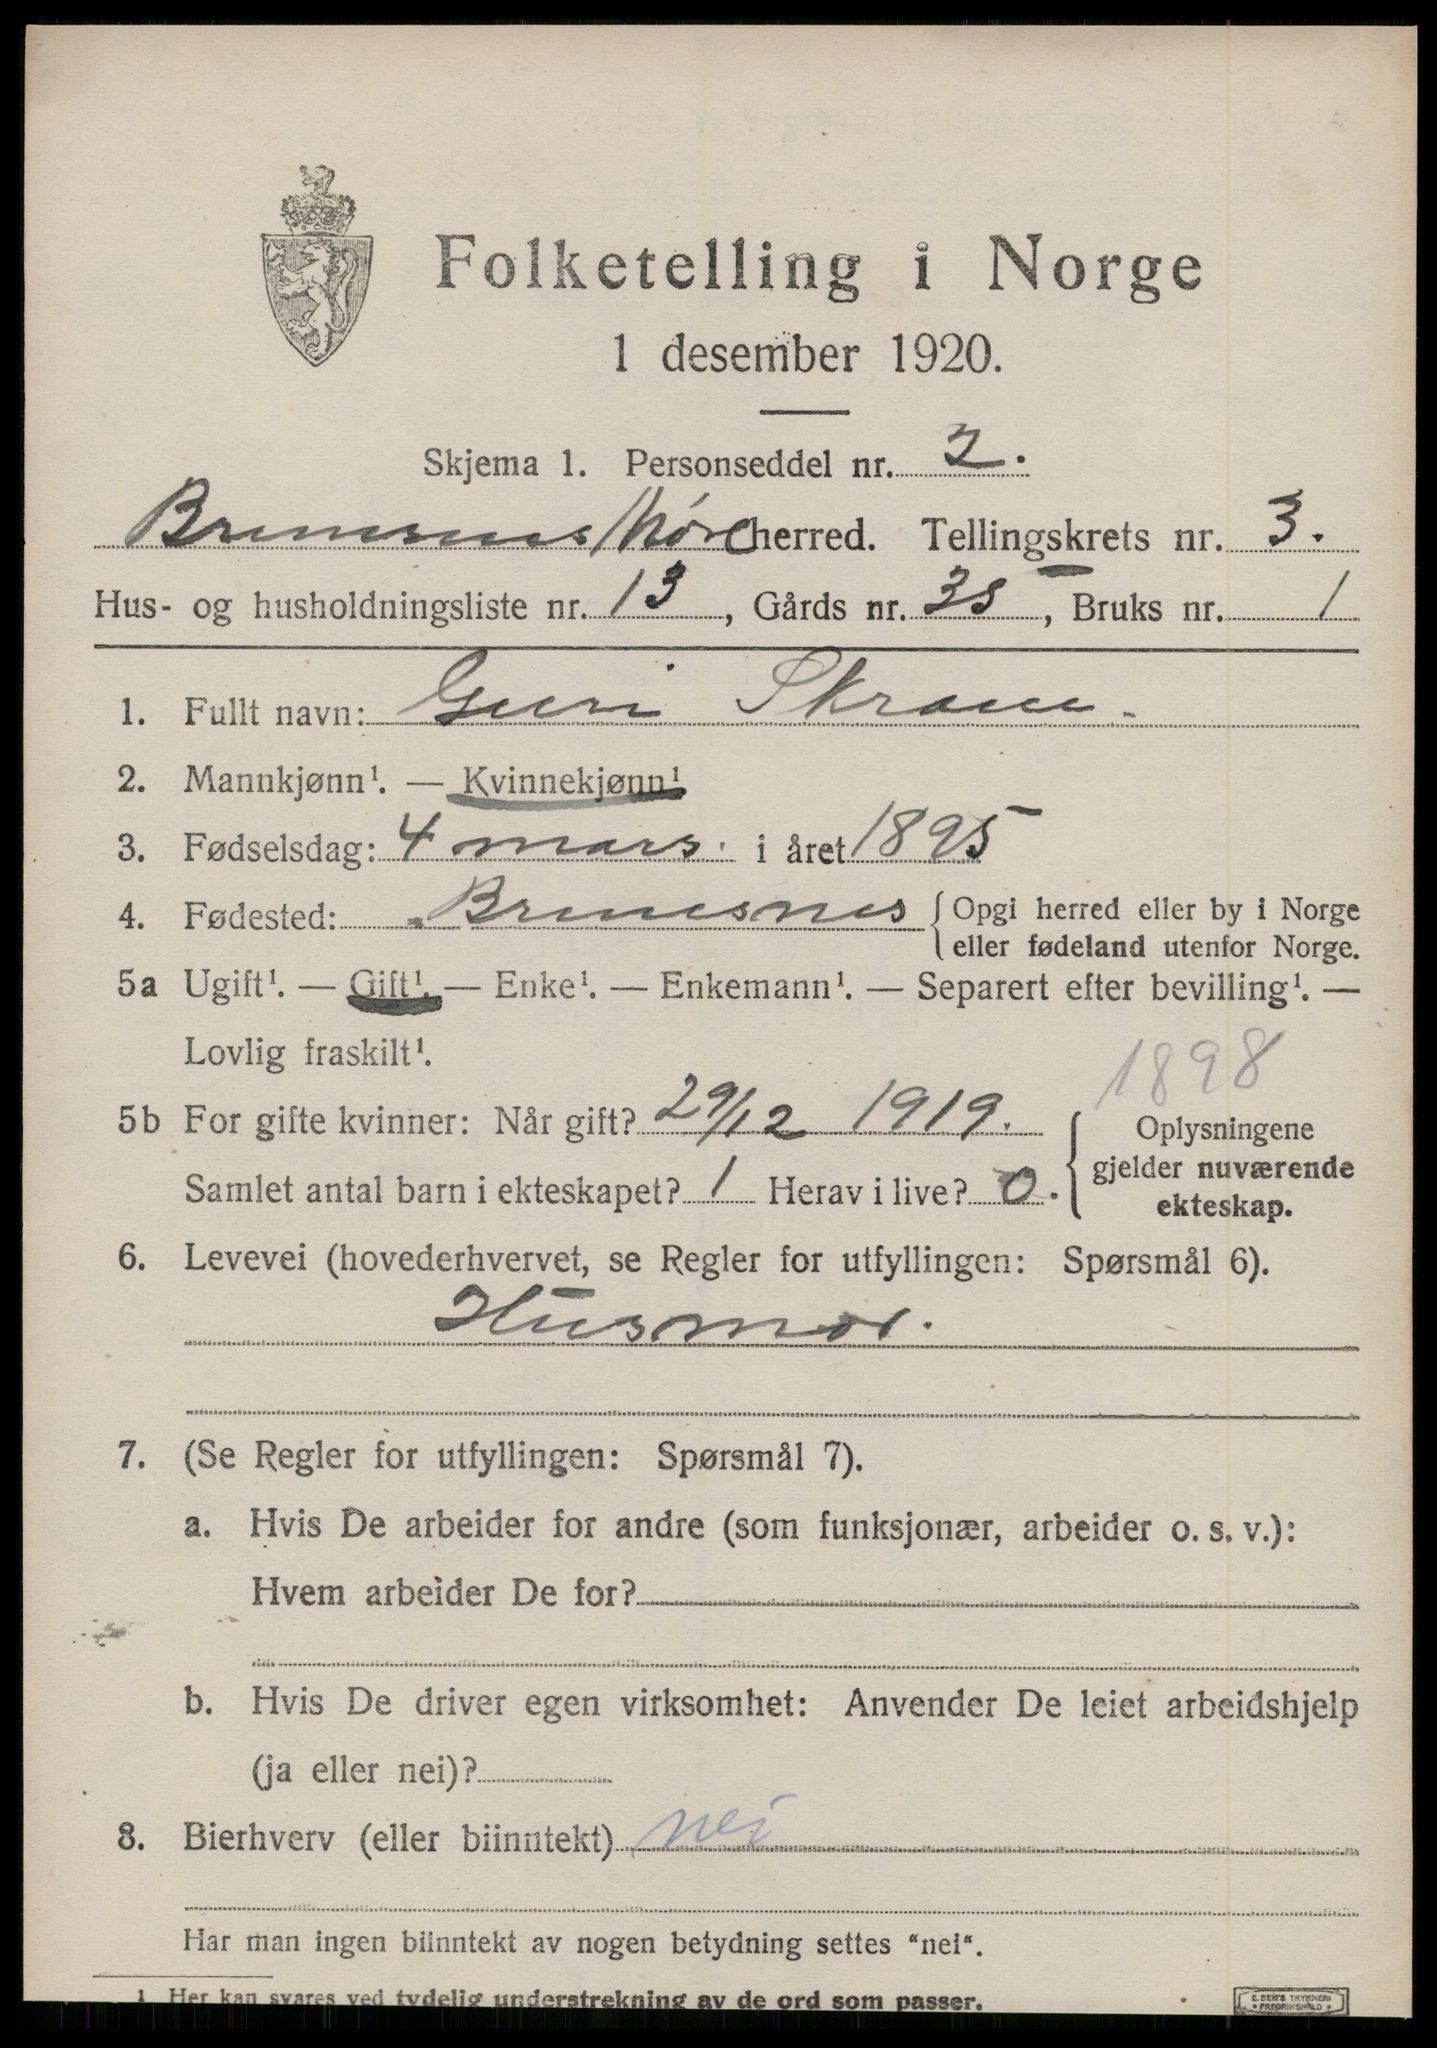 Folketelling i Norge
1 desember 1920.
Skjema 1. Personseddel nr. 2.
Bremsnes Møre herred. Tellingskrets nr. 3.
Hus- og husholdningsliste nr. 13, Gårds nr. 35, Bruks nr. 1
1. Fullt navn: Guri Skram.
2. Mannkjønn¹. — Kvinnekjønn¹.
3. Fødselsdag: 4 mars. i året 1895
4. Fødested: Bremsnes { Opgi herred eller by i Norge
eller fødeland utenfor Norge.
5a Ugift¹. — Gift¹. — Enke¹. — Enkemann¹. — Separert efter bevilling¹. —
Lovlig fraskilt¹.
1898
5b For gifte kvinner: Når gift? 29/12 1919. { Oplysningene
gjelder nuværende
ekteskap.
Samlet antal barn i ekteskapet? 1 Herav i live? 0.
6. Levevei (hovederhvervet, se Regler for utfyllingen: Spørsmål 6).
Husmor.
7. (Se Regler for utfyllingen: Spørsmål 7).
a. Hvis De arbeider for andre (som funksjonær, arbeider o. s. v.):
Hvem arbeider De for?
b. Hvis De driver egen virksomhet: Anvender De leiet arbeidshjelp
(ja eller nei)?
8. Bierhverv (eller biinntekt) nei
Har man ingen biinntekt av nogen betydning settes "nei".
1 Her kan svares ved tydelig understrekning av de ord som passer.
E. SEM'S TRYKKERI
• FREDRIKSHALD •